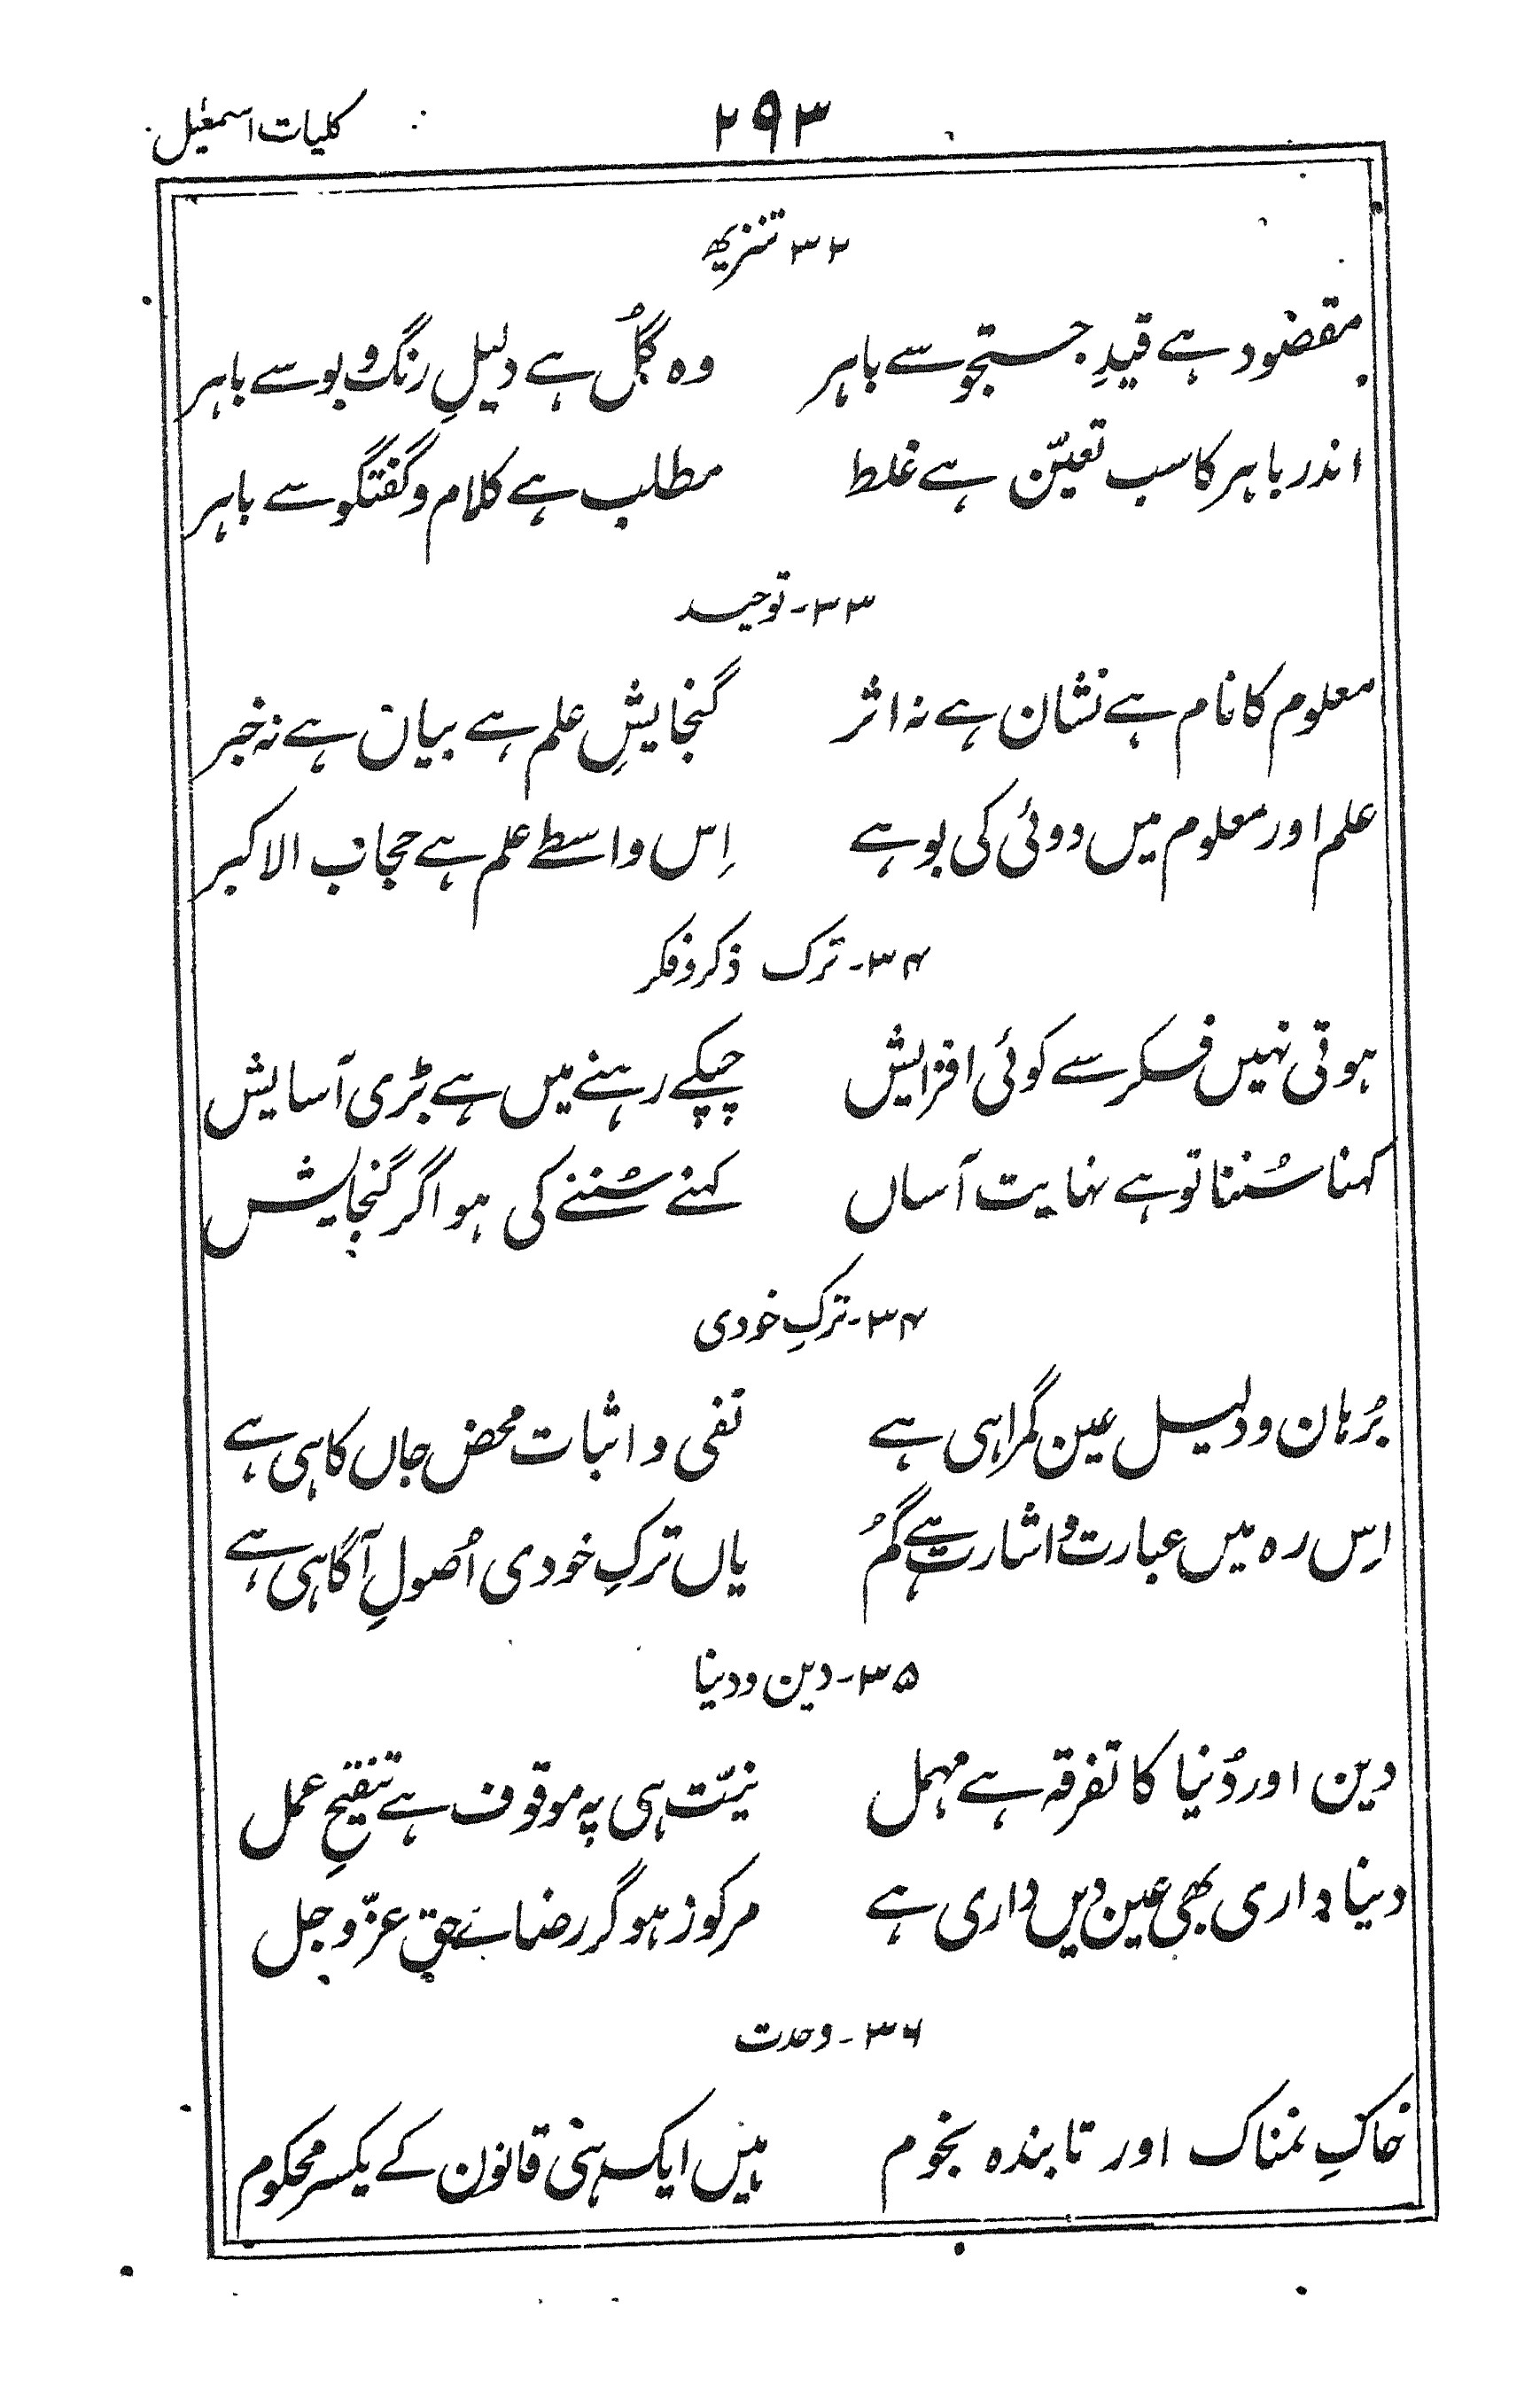 ۲۹۳ کلیات اسمٰعیل
۳۲ تنزیھ
مقصُود ہے قیدِ جستجو سے باہر وہ گُل ہے دلیلِ رنگ و بو سے باہر
اندر باہر کا سب تعیّن ہے غلط مطلب ہے کلام و گفتگو سے باہر
۳۳-توحید
معلوم کا نام ہے نشان ہے نہ اثر گنجایشِ علم ہے بیان ہے نہ خبر
علم اور معلوم میں دوئی کی بو ہے اِس واسطے علم ہے حجاب الاکبر
۳۴-ترک ذکر و فکر
ہوتی نہیں فکر سے کوئی افزایش چپکے رہنے میں ہے بڑی آسایش
کہنا سُننا تو ہے نہایت آساں کہنے سُننے کی ہو اگر گنجایش
۳۴-ترکِ خودی
بُرہان و دلیل عین گمراہی ہے نفی و اثبات محض جاں کاہی ہے
اِس رہ میں عبارت و اشارت ہے گُم یاں ترکِ خودی اُصولِ آگاہی ہے
۳۵-دین و دینا
دین اور دُنیا کا تفرقہ ہے مہمل نیّت ہی پہ موقوف ہے تنقیحِ عمل
دینا داری بھی عین دیں داری ہے مرکوز ہو گر رضاے حق عزّ و جل
۳۶-وحدت
خاکِ نمناک اور تابندہ نجوم ہیں ایک ہی قانون کے یکسر محکوم